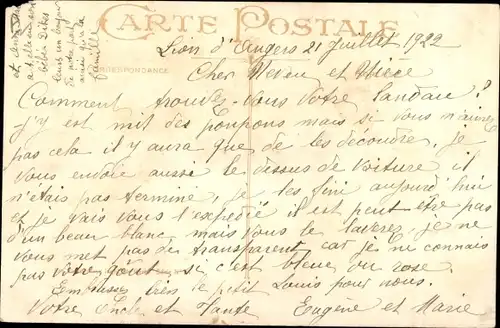 CARTE POSTALE
CORRESPONDANCE
Lion d'Angers 21 Juillet 1922
Cher Neveu et Nièce
Comment trouvez-vous votre landau?
j'y est mit des pompons mais si vous n'aimez
pas cela il y aura que de les decoudre, je
vous envoie aussi le dessus de voiture il
n'étais pas terminé, je les fini aujourd'hui
et je vais vous l'expedié il est peut être pas
d'un beau blanc mais vous le laverez, je ne
vous met pas de transparent car je ne connais
pas votre goût si c'est bleue ou rose.
Embrassez bien le petit Louis pour nous.
Votre Oncle et Tante Eugène et Marie
et
beber Dites
leurs un bonjour
de notre part
ainsi qu'a la
famille